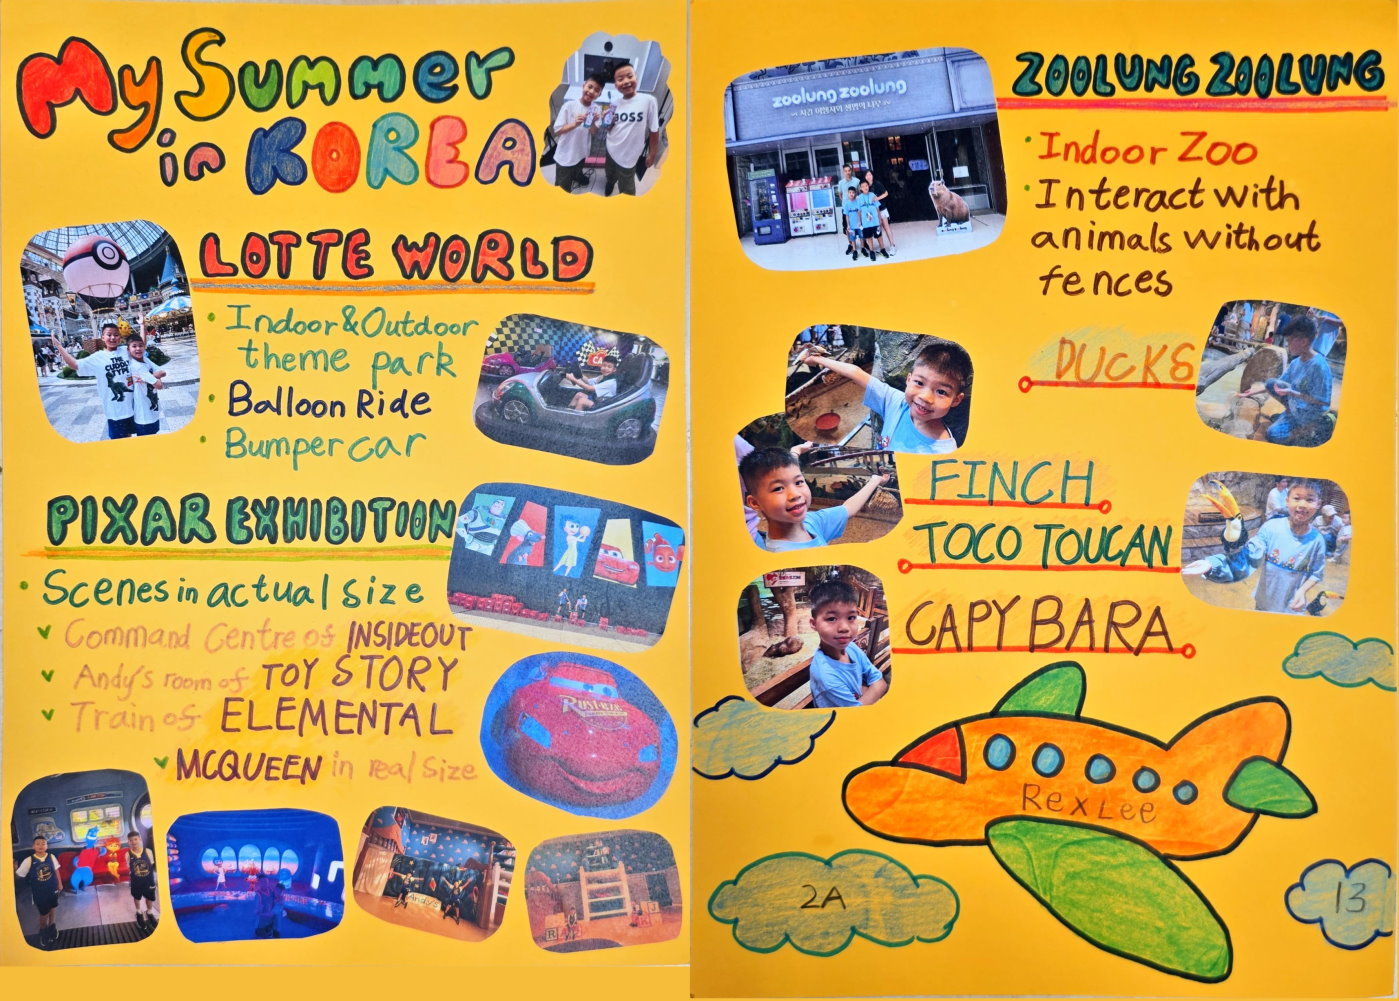 My Summer
in KOREA
BOSS
LOTTE WORLD
• Indoor & Outdoor
theme park
• Balloon Ride
• Bumper car
PIXAR EXHIBITION
• Scenes in actual size
Command Centre of INSIDEOUT
Andy's room of TOY STORY
Train of ELEMENTAL
MCQUEEN in real size
Andy's
zoolung zoolung
ZOOLUNG ZOOLUNG
• Indoor Zoo
• Interact with
animals without
fences
DUCKS
FINCH
TOCO TOUCAN
CAPYBARA
Rex Lee
2A
13